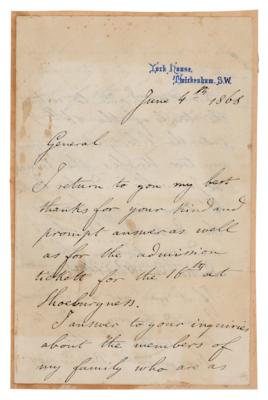 York House,
Twickenham. S.W.
June 4th 1868
General
I return to you my best
thanks for your kind and
prompt answer as well
as for the admission
tickett for the 16th at
Shoeburyness.
I answer to your inquiries
about the members of
my family who are as